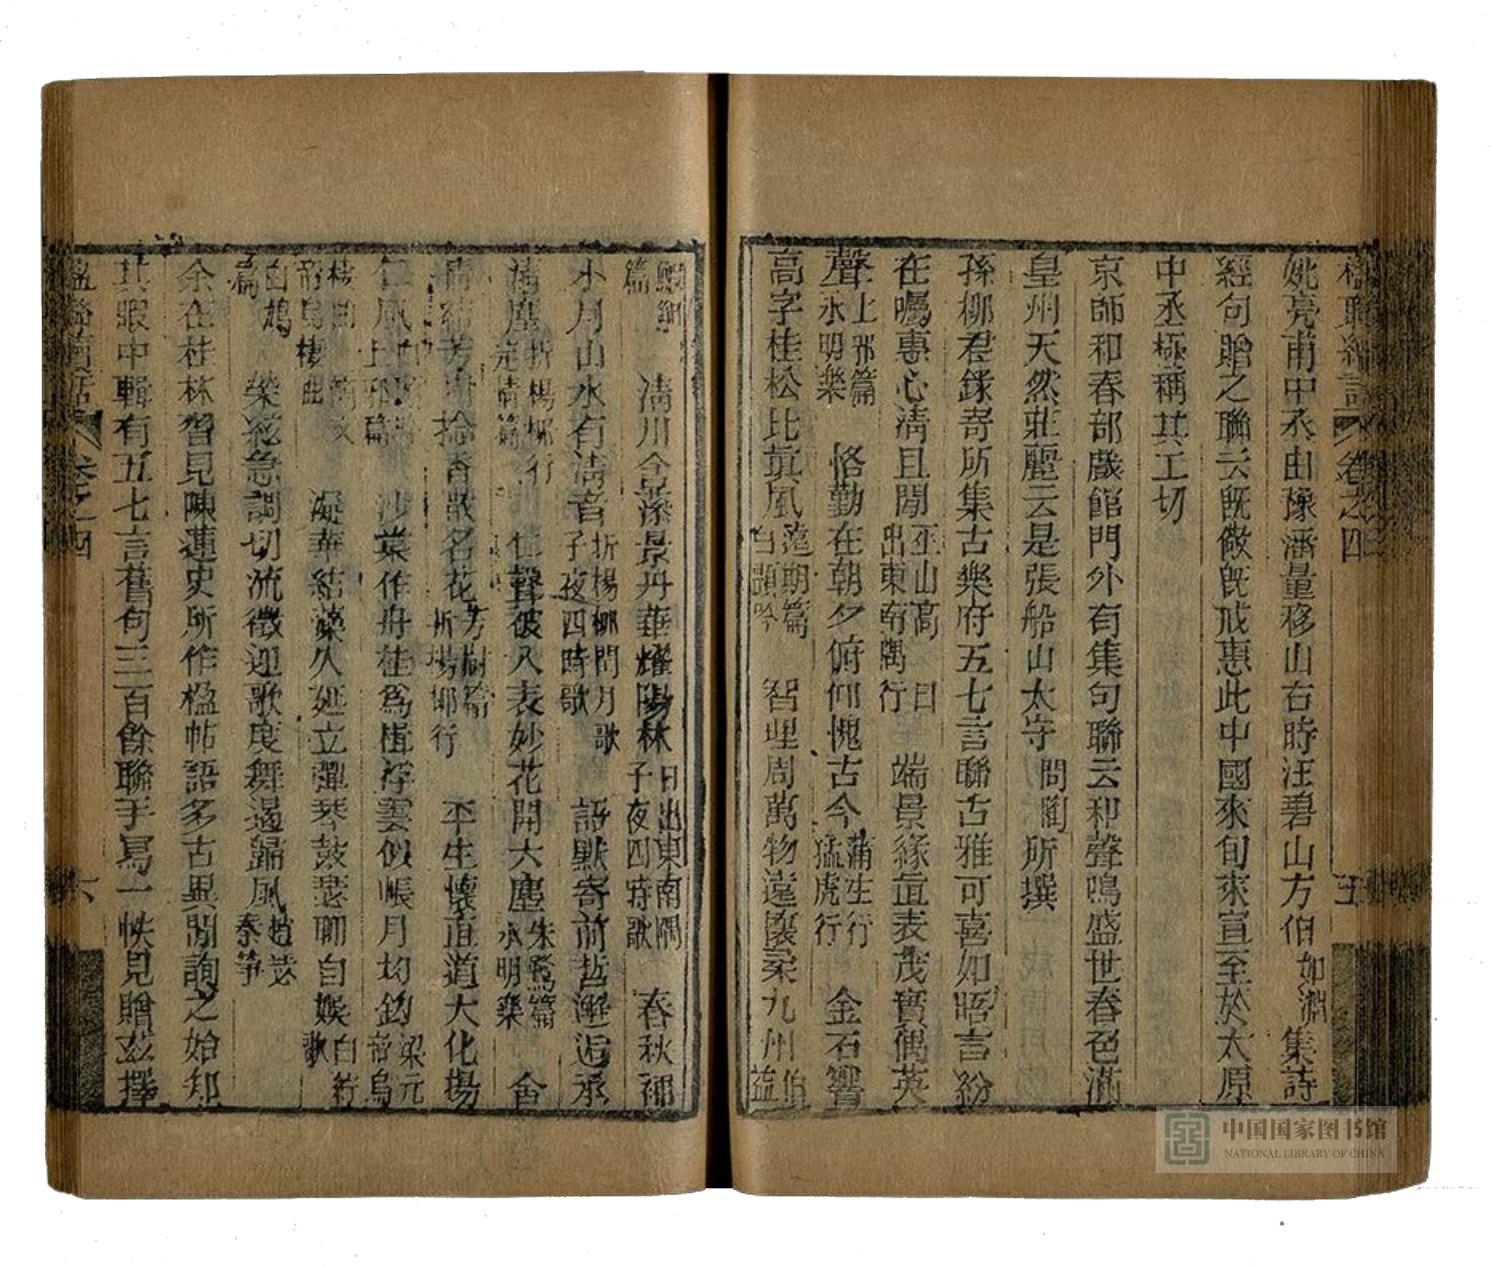 楹聯續話 卷之四 五
姚亮甫中丞由豫藩量移山右時汪碧山方伯如淵集詩
經句贈之聯云旣儆旣戒惠此中國來旬來宣至於太原
中丞極稱其工切
京師和春部戲館門外有集句聯云和聲鳴盛世春色滿
皇州天然莊麗云是張船山太守問陶所撰
孫柳君錄寄所集古樂府五七言聯古雅可喜如晤言紛
在矚惠心淸且閒巫山高日出東南隅行 端景緣直表茂實偶英
聲上邪篇永明樂 恪勤在朝夕俯仰愧古今蒲生行猛虎行 金石響
高字桂松比眞風遠期篇白頭吟 智理周萬物遠懷柔九州伯益
篇 淸川含藻景丹華耀陽林日出東南隅子夜四時歌 春秋
小月山水有淸音折楊柳問月歌子夜四時歌 語默寄前哲邂逅承
淸塵折楊柳行 佳聲被八表妙花開六塵朱鷺篇永明樂 含
拾香歌名花芳樹篇折楊柳行 平生懷直道大化揚
仁風 沙棠作舟桂爲楫浮雲似帳月如鉤梁元帝烏
棲曲 凝華結藻久延立彈琴鼓瑟聊自娛白紵歌
白鳩篇 榮絃急調切流徵迎歌度舞遏歸風趙瑟秦箏
余在桂林習見陳蓮史所作楹帖語多古異閒詢之始知
其暇中輯有五七言舊句三百餘聯手寫一帙見贈茲擇
楹聯續話 卷之四 六
中国国家图书馆
NATIONAL LIBRARY OF CHINA